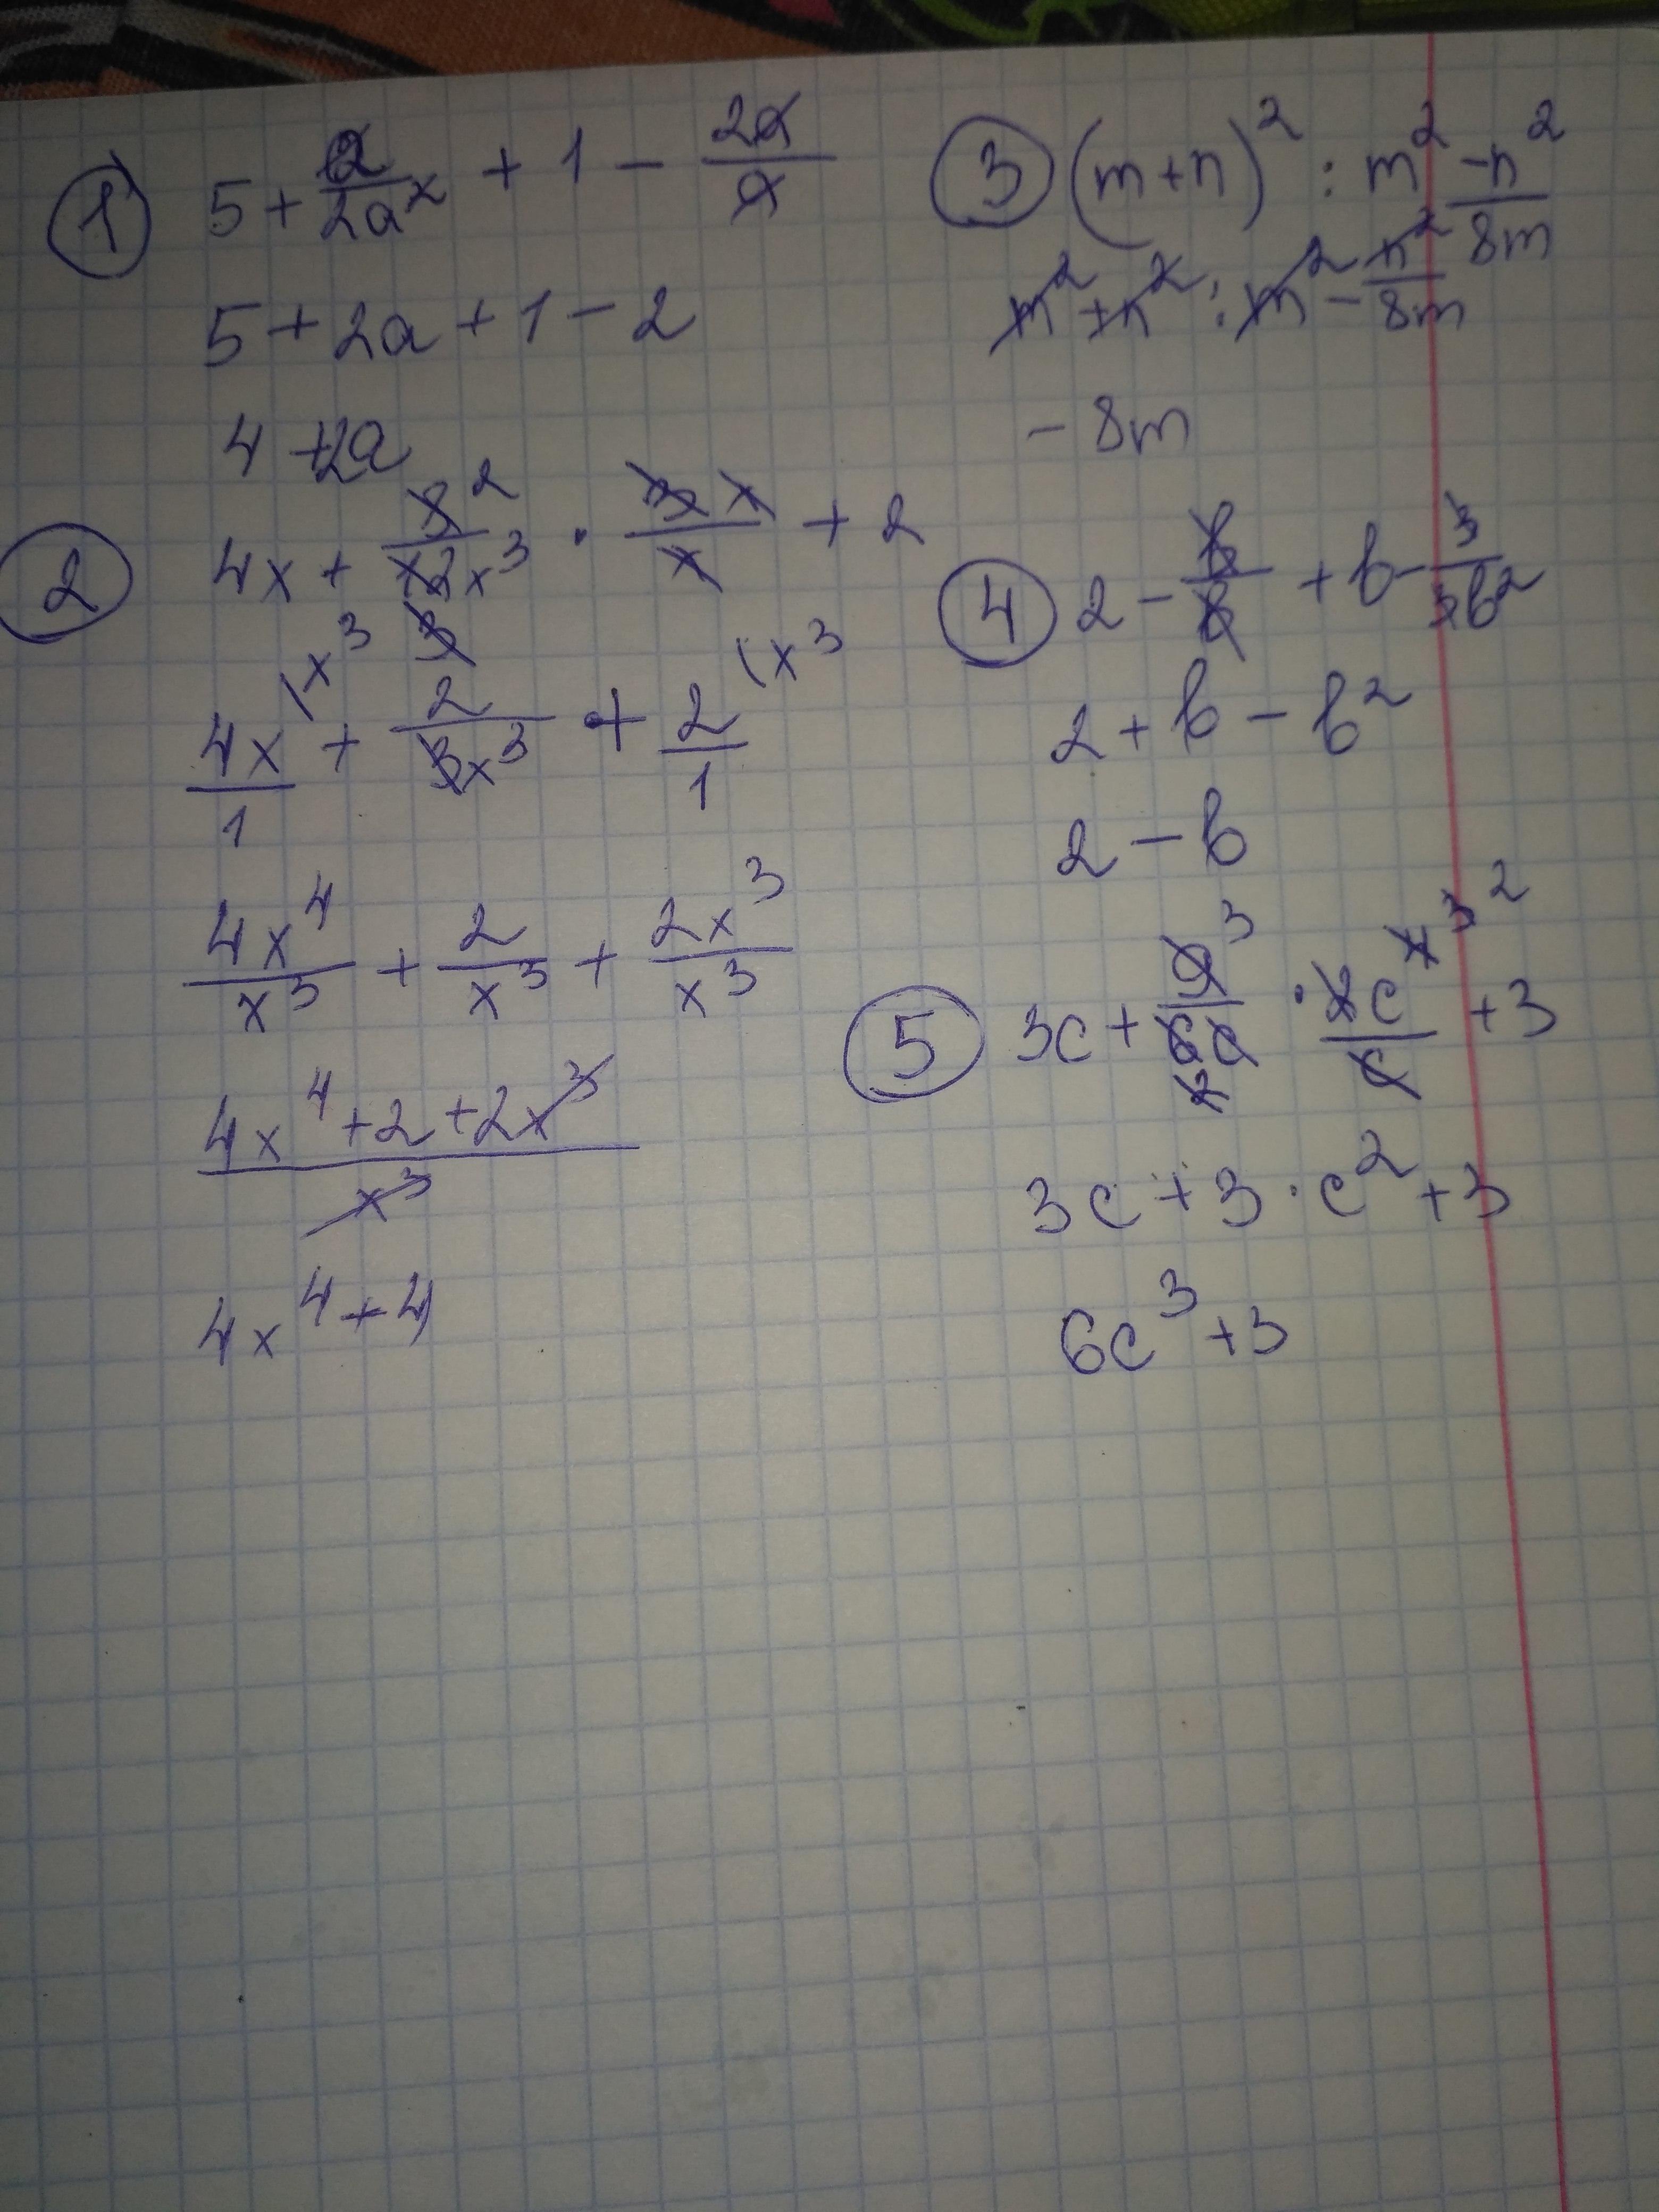 ① 5 + 2/2a² + 1 − 2a/a
5 + 2a + 1 − 2
4 + 2a
② 4x + 8²/12x³ · 3x/x + 2
3
4x/1 (x³ + 2/3x³ + 2/1 (x³
4x⁴/x³ + 2/x³ + 2x³/x³
4x⁴ + 2 + 2x³/x³
4x⁴ + 4
③ (m+n)² : m² −n²/8m
m² + n² : m² − n²/8m
− 8m
④ 2 − b/b + b − 3/3b²
2 + b − b²
2 − b
⑤ 3c + 9³/6c · 2c⁴ ³ ²/c + 3
2
3c + 3 · c² + 3
6c³ + 3